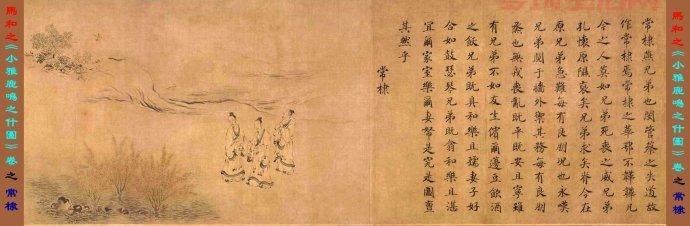 馬和之《小雅鹿鳴之什圖》卷之常棣
常棣燕兄弟也閔管蔡之失道故
作常棣焉常棣之華鄂不韡韡凡
今之人莫如兄弟死喪之威兄弟
孔懷原隰裒矣兄弟求矣脊令在
原兄弟急難每有良朋況也永嘆
兄弟鬩于牆外禦其務每有良朋
烝也無戎喪亂既平既安且寧雖
有兄弟不如友生儐爾籩豆飲酒
之飫兄弟既具和樂且孺妻子好
合如鼓瑟琴兄弟既翕和樂且湛
宜爾家室樂爾妻帑是究是圖亶
其然乎
常棣
馬和之《小雅鹿鳴之什圖》卷之常棣